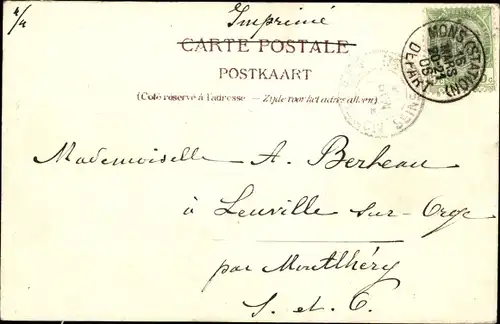 4/4
Imprimé
CARTE POSTALE
POSTKAART
(Coté réservé à l'adresse — Zijde voor het adres alleen)
MONS (STATION)
DEPART
Mademoiselle A. Berheau
à Leuville sur Orge
par Montlhéry
S. et O.